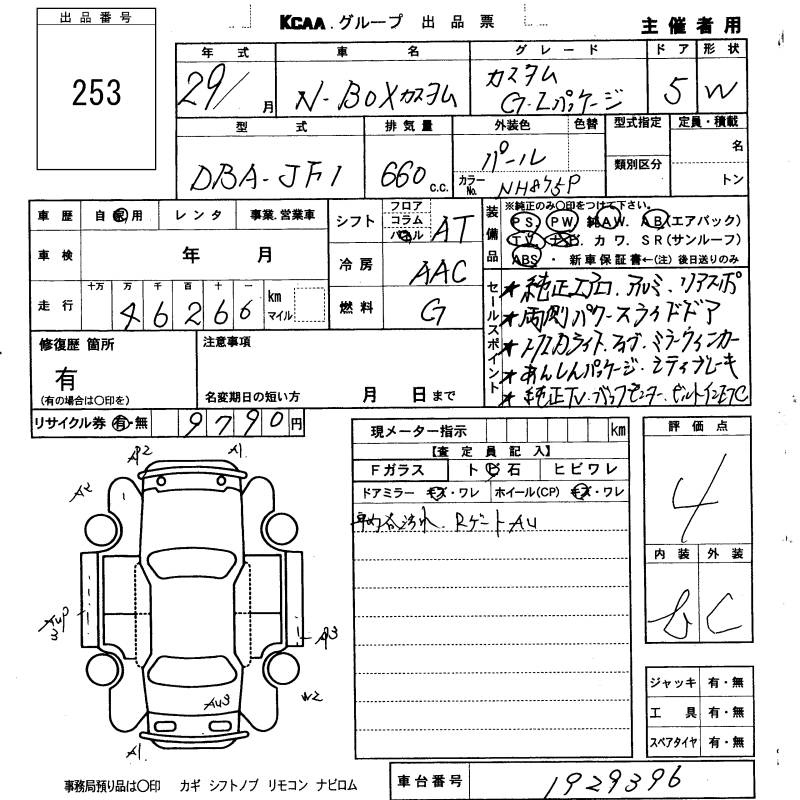 出品番号
253
KCAA.グループ 出品票
主催者用
年式 車名 グレード ドア 形状
29/ 月 N-BOXカスタム カスタム G-Lパッケージ 5 W
型式 排気量 外装色 色替 型式指定 定員・積載
DBA-JF1 660 c.c. パール 類別区分 名
カラーNo. NH875P トン
車歴 自家用 レンタ 事業.営業車
シフト フロア コラム パネル AT
車検 年 月
冷房 AAC
走行 十万 万 千 百 十 一 km マイル
4 6 2 6 6
燃料 G
装備品 ※純正のみ○印をつけて下さい。
PS PW 純AW. AB(エアバック)
TV ナビ カワ. SR(サンルーフ)
ABS ・ 新車保証書←(注)後日送りのみ
セールスポイント
★純正エアロ.アルミ.リアスポ
★両側パワースライドドア
ライト.フォグ.ミラーウィンカー
★あんしんパッケージ.シティブレーキ
★純正TV.バックモニター.ビルトインETC
修復歴 箇所
有
(有の場合は○印を)
注意事項
名変期日の短い方 月 日まで
リサイクル券 有・無 9790円
現メーター指示 km
【査定員記入】
Fガラス トビ石 ヒビワレ
ドアミラー キズ・ワレ ホイール(CP) キズ・ワレ
車内谷汚れ. Rゲート AU
評価点
4
内装 外装
b C
ジャッキ 有・無
工具 有・無
スペアタイヤ 有・無
AP2 A1
A2
AUP3 AP3
AU3 W2
A1
事務局預り品は○印 カギ シフトノブ リモコン ナビロム
車台番号 1929396